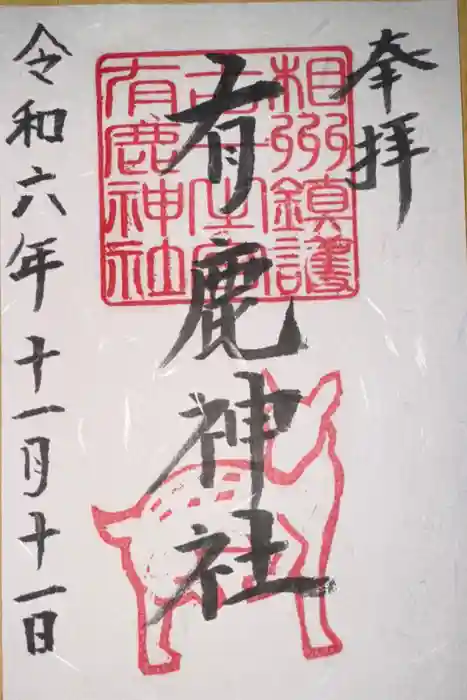 奉拝
有鹿神社
相州鎮護
有鹿神社
令和六年十一月十一日